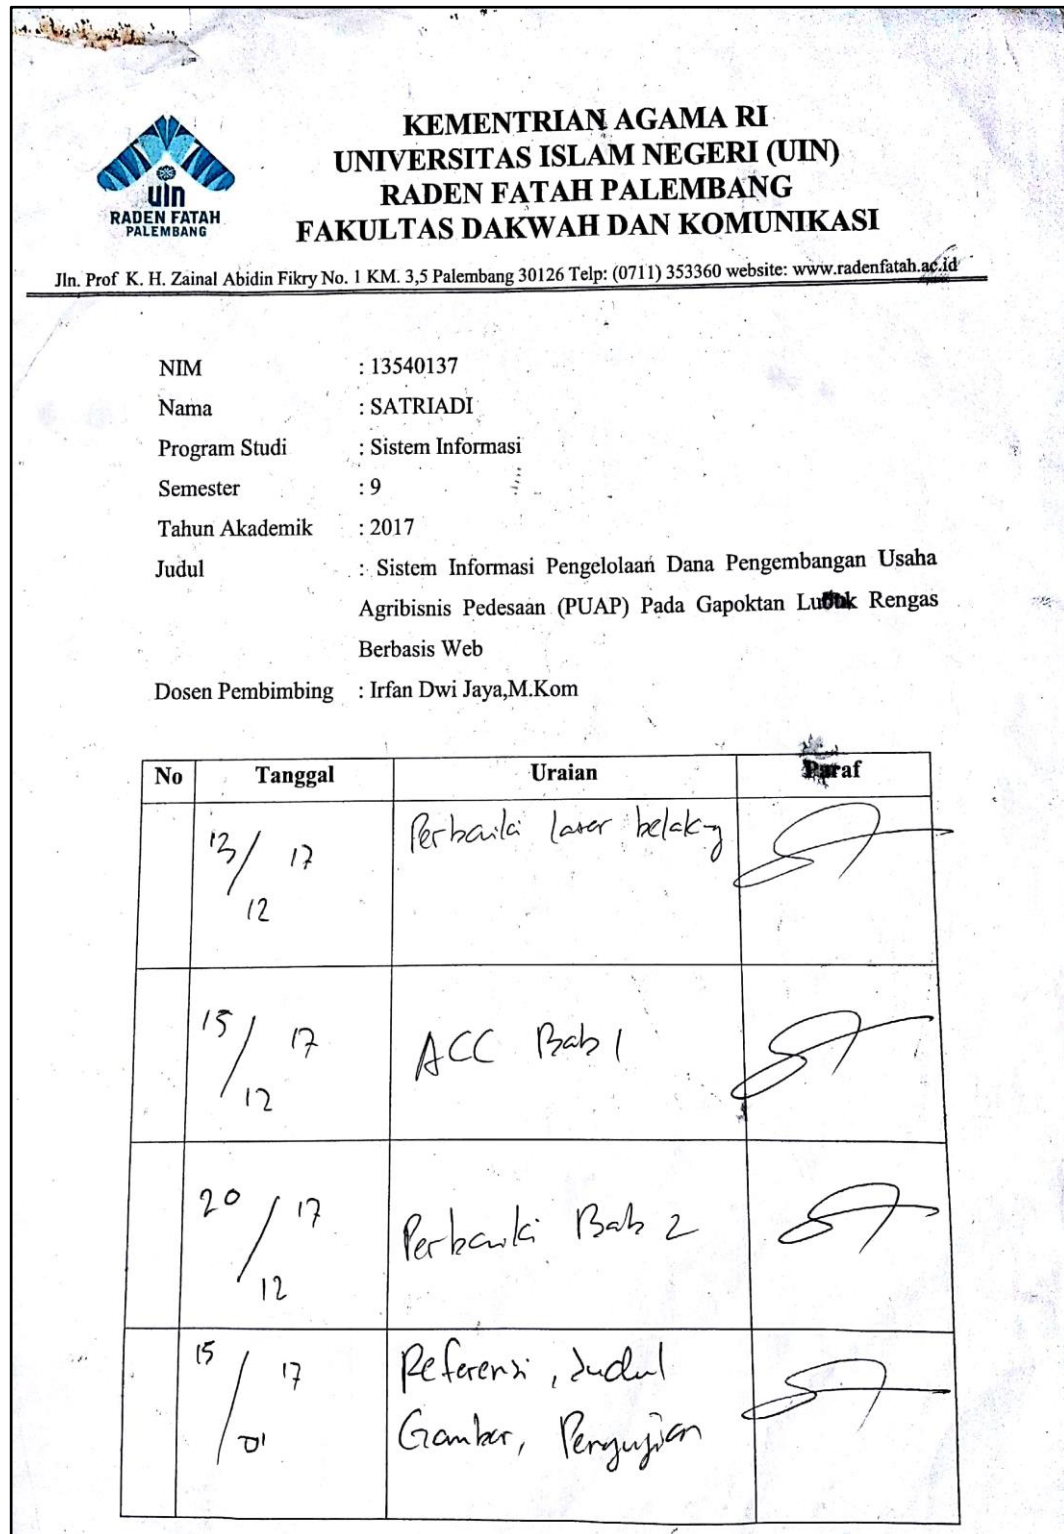 uin
RADEN FATAH
PALEMBANG
KEMENTRIAN AGAMA RI
UNIVERSITAS ISLAM NEGERI (UIN)
RADEN FATAH PALEMBANG
FAKULTAS DAKWAH DAN KOMUNIKASI
Jln. Prof K. H. Zainal Abidin Fikry No. 1 KM. 3,5 Palembang 30126 Telp: (0711) 353360 website: www.radenfatah.ac.id
NIM : 13540137
Nama : SATRIADI
Program Studi : Sistem Informasi
Semester : 9
Tahun Akademik : 2017
Judul : Sistem Informasi Pengelolaan Dana Pengembangan Usaha
Agribisnis Pedesaan (PUAP) Pada Gapoktan Lubuk Rengas
Berbasis Web
Dosen Pembimbing : Irfan Dwi Jaya,M.Kom
No Tanggal Uraian Paraf
13/12 17 Perbaiki latar belakang
15/12 17 ACC Bab 1
20/12 17 Perbaiki Bab 2
15/01 17 Referensi, Judul
Gambar, Pengujian